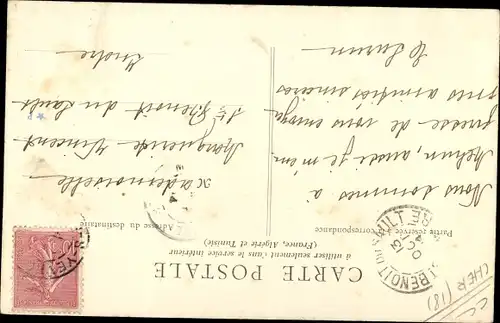 CARTE POSTALE
à utiliser seulement dans le service intérieur
(France, Algérie et Tunisie)
Partie réservée à la correspondance
Adresse du destinataire
Nous sommes à
Mehun, aussi je m'em
presse de vous envoyer
mes amitiés sincères
Mademoiselle
Marguerite Vincent
St Benoit du Sault
Indre
ST BENOIT DU SAULT
CHER (18)